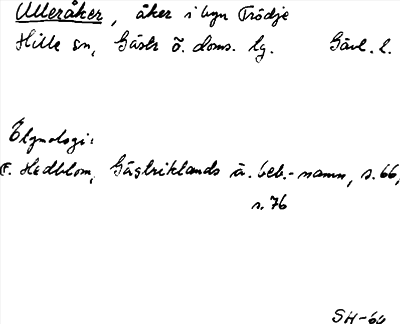 Ulleråker, åker i byn Trödje
Hille sn, Gästr ö. doms. lg. Gävl. l.
Etymologi:
F. Hedblom, Gästriklands ä. beb.-namn, s. 66,
s. 76
SH-60